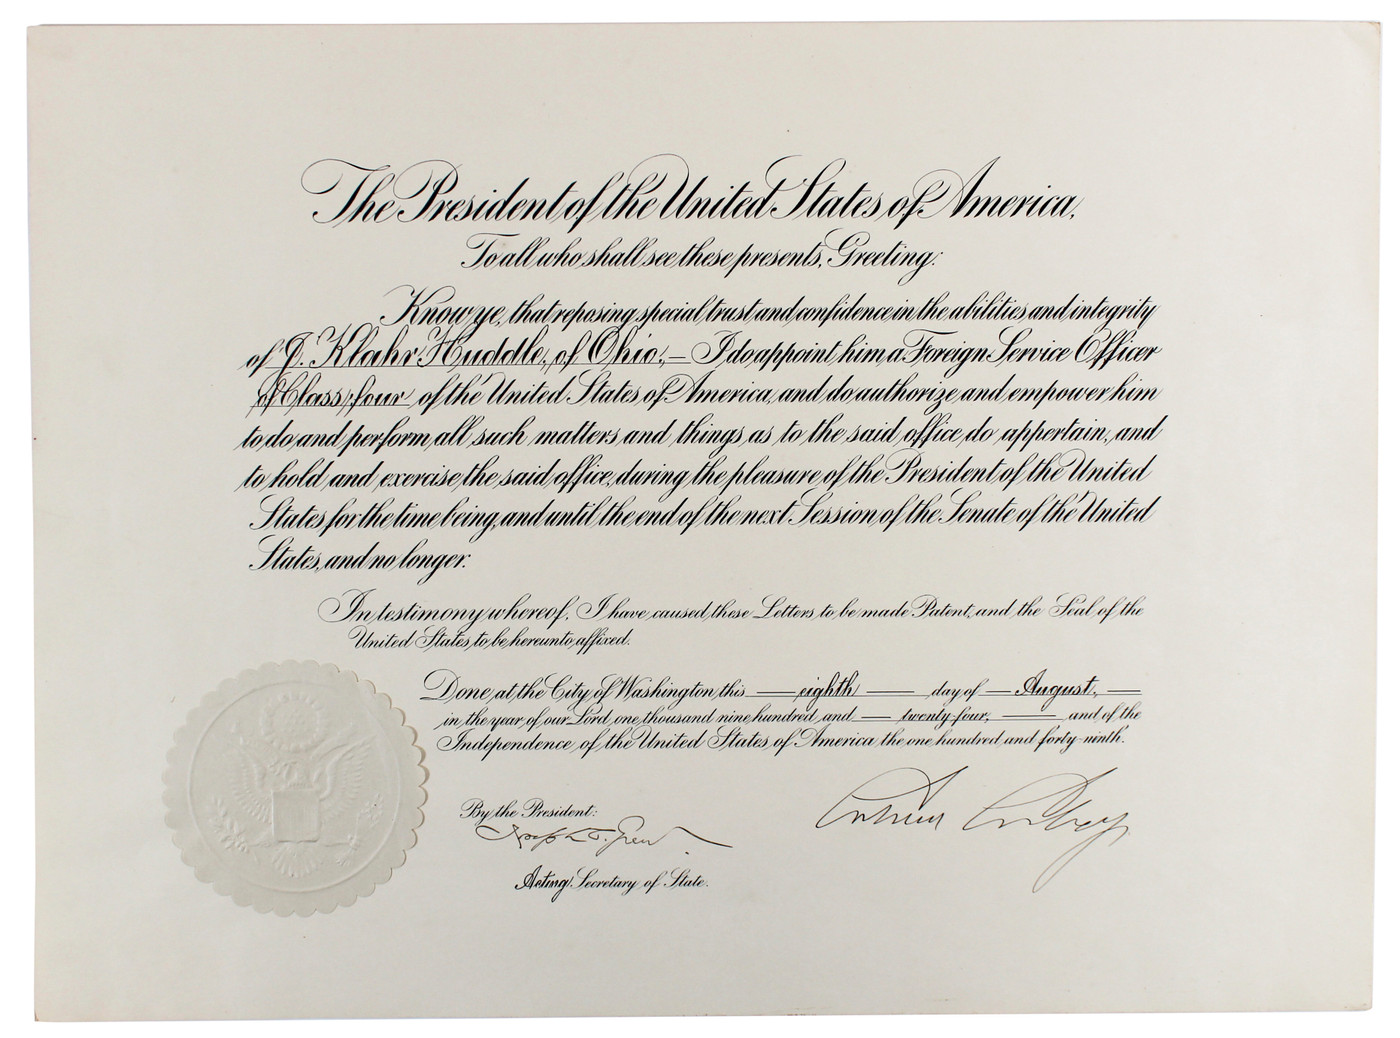 The President of the United States of America,
To all who shall see these presents, Greeting:
Know ye, that reposing special trust and confidence in the abilities and integrity
of J. Klahr Huddle, of Ohio, — I do appoint him a Foreign Service Officer
of Class four of the United States of America, and do authorize and empower him
to do and perform all such matters and things as to the said office do appertain, and
to hold and exercise the said office, during the pleasure of the President of the United
States for the time being, and until the end of the next Session of the Senate of the United
States, and no longer.
In testimony whereof, I have caused these Letters to be made Patent, and the Seal of the
United States to be hereunto affixed.
Done at the City of Washington this — eighth — day of — August, —
in the year of our Lord one thousand nine hundred and — twenty-four, — and of the
Independence of the United States of America the one hundred and forty-ninth.
Calvin Coolidge
By the President:
Joseph C. Grew
Acting Secretary of State.